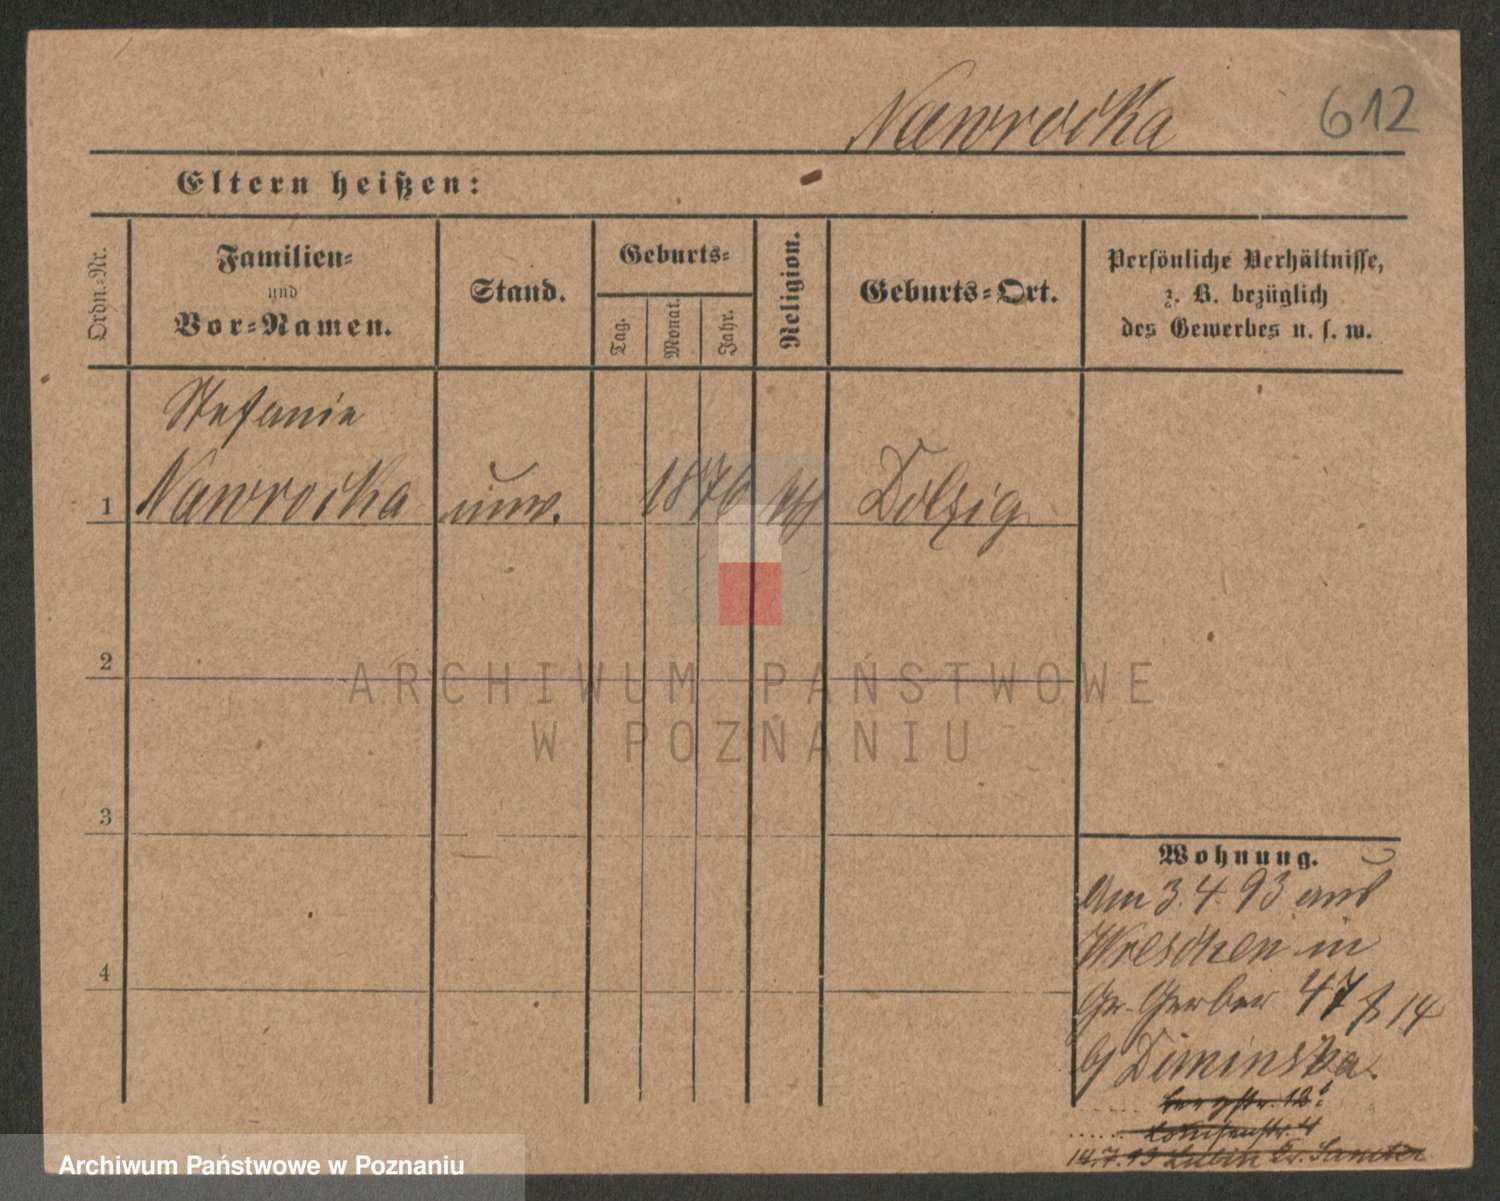 Nawrocka 612
Eltern heißen:
Ordn.-Nr.
Familien-
und
Vor-Namen.
Stand.
Geburts-
Tag.
Monat.
Jahr.
Religion.
Geburts-Ort.
Persönliche Verhältnisse,
z. B. bezüglich
des Gewerbes u. s. w.
Stefanie
1 Nawrocka unv. 1876 kth Dolzig
2
3
4
Wohnung.
Am 3.4.93 aus
Wreschen in
Gr. Gerber 47 14
Diminska.
Bergstr. 12
Louisenstr. 4
14.7.93 Lubin Kr. Samter
ARCHIWUM PAŃSTWOWE
W POZNANIU
Archiwum Państwowe w Poznaniu